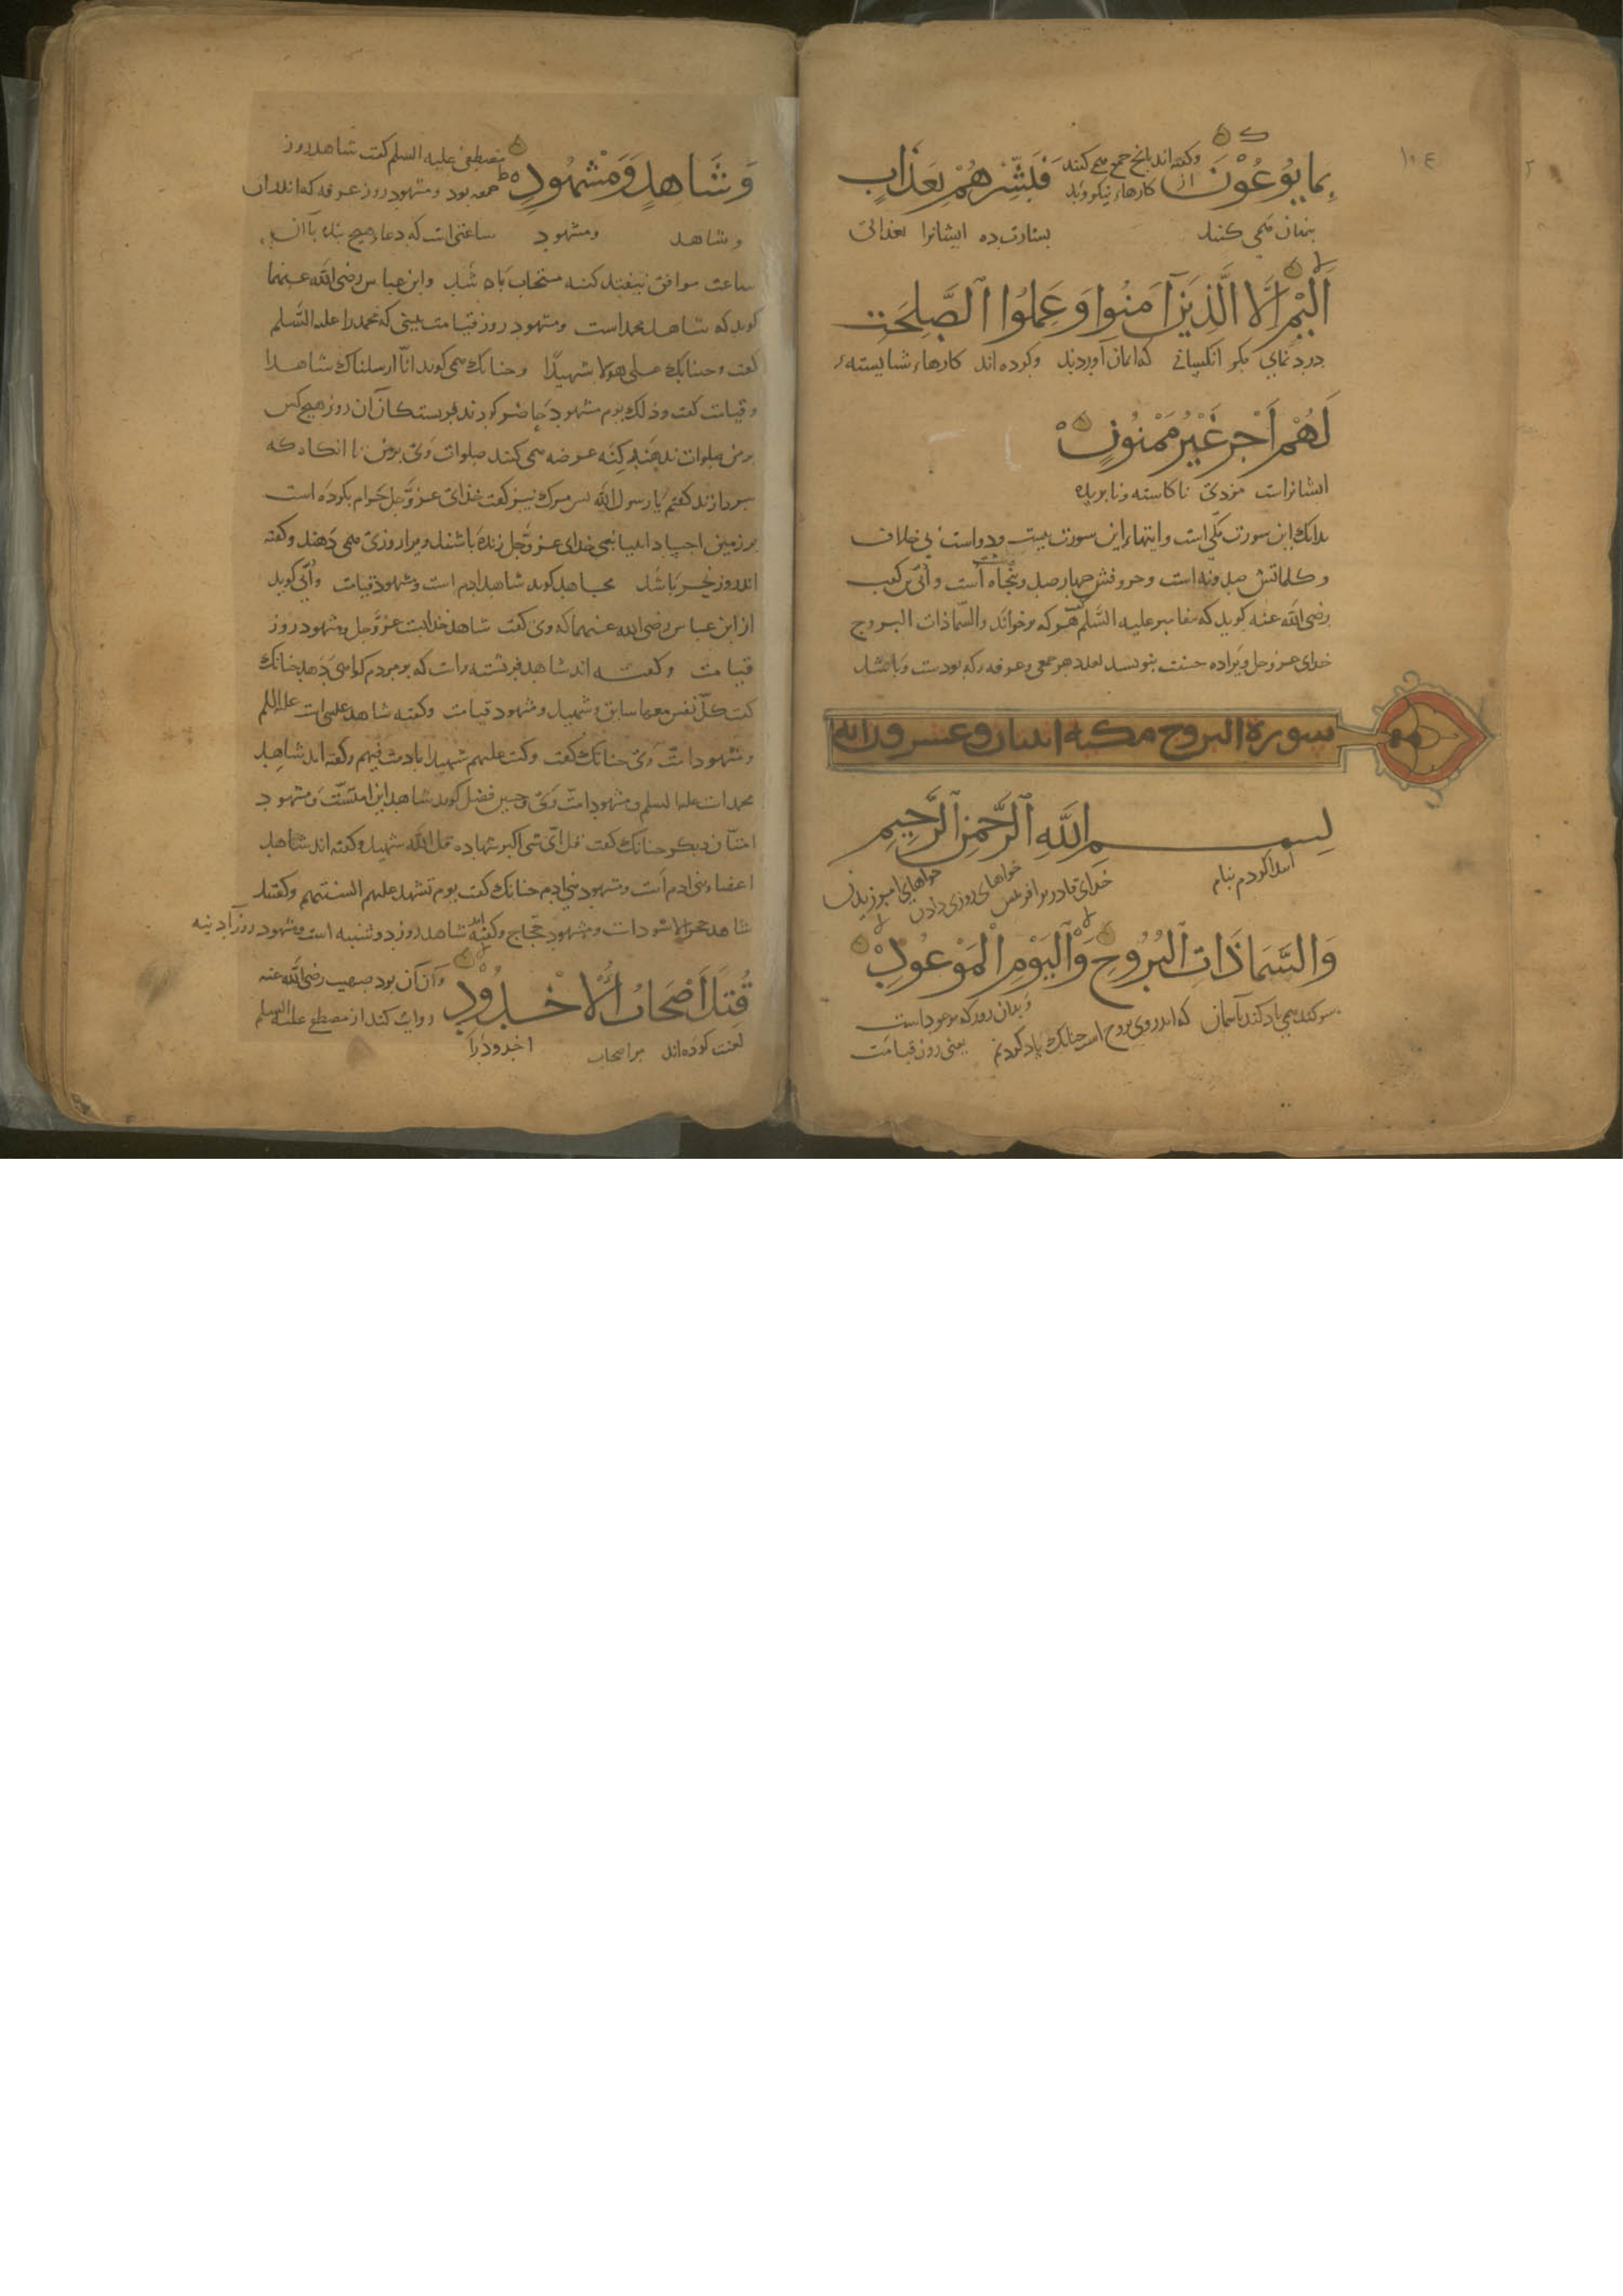 ١٠٤
وگفته‌اند بانچ جمع می کنند
بِمَا يُوعُوْنَ از کارهاء نیک و بد فَبَشِّرْهُمْ بِعَذَابٍ
پنهان می کنند بشارت ده ایشانرا بعذابی
اَلِيْمٍ اِلَّا الَّذِيْنَ آمَنُوا وَعَمِلُوا الصَّلِحَتِ
دردنمای مگر آنکسانی که ایمان آوردند وکرده اند کارهاء شایسته
لَهُمْ اَجْرٌ غَيْرُ مَمْنُونٍ
ایشانراست مزدی ناکاسته ونابریده
بدانک این سورت مکّی است وایتهاء این سورت بیست ودواست بی خلاف
وکلماتش صد ونه است وحروفش چهارصد وپنجاه است واُبّی بن کعب
رضی الله عنه گوید که پیغامبر علیه السَّلم گفت هر که برخواند والسّماذات البروج
خدای عزوجل ویرا ده حسنت بنویسد بعدد هر جمعی وعرفه که بودست وباشد
سورة البروج مكية اثنان وعشرون اية
بسم اللهِ الرَّحْمنِ الرَّحِيمِ
ابتدا کردم بنام خدای قادر بر آفرینش خواهای روزی دادن خواهای امرزیدن
وَالسَّمَاذَاتِ الْبُرُوجِ وَالْيَوْمِ الْمَوْعُودِ
سوکند می یاد کند باسمان که اندروی بروج است چنانک یاد کردیم وبدان روز که موعود است
یعنی روز قیامت
مصطفی علیه السلم گفت شاهد روز
وَشَاهِدٍ وَمَشْهُودٍ جمعه بود ومشهود روز عرفه که اندران
وشاهد ومشهود ساعتی است که دعاء هیچ بنده با آن
ساعت موافق نیفتد که نه مستجاب باشد وابن عباس رضی الله عنهما
گوید که شاهد محمد است ومشهود روز قیامت بینی که محمد را علیه السَّلم
گفت وجئنابک علی هولا شهیدًا وچنانک می گوید انّا ارسلناک شاهدا
وقیامت گفت وذلک یوم مشهود حاضر گردند فریستکان آن روز هیچ کس
بر من صلوات ندهند که نه عرضه می کنند صلوات وی بر من تا انگاه که
بپردازند گفتم یا رسول الله پس مرگ نیز گفت خدای عزّوجل حرام بکرده است
بر زمین اجساد انبیا نبی خدای عزّوجل زنده باشند ویرا روزی می دهند وگفته
اند روز نحر باشد مجاهد گوید شاهد ادم است ومشهود قیامت واُبّی گوید
از ابن عباس رضی الله عنهما که وی گفت شاهد خدایست عزّوجل ومشهود روز
قیامت وگفته اند شاهد فریشته راست که بر مردم گواهی دهد چنانک
گفت کلّ نفس معها سایق وشهید ومشهود قیامت وگفته شاهد عیسی است علیه السلم
ومشهود امّت وی چنانک گفت وکنت علیهم شهیدا مادمت فیهم وگفته اند شاهد
محمد است علیه السلم ومشهود امّت وی وحسین فضل گوید شاهد این امتست ومشهود
امتان دیگر چنانک گفت قل ایّ شی اکبر شهاده قل الله شهید وگفته اند شاهد
اعضاء بنی ادم است ومشهود بنی ادم چنانک گفت یوم تشهد علیهم السنتهم وگفته
شاهد حجر الاسود است ومشهود حجّاج وگفته اند شاهد روز دوشنبه است ومشهود روز آدینه
قُتِلَ اَصْحَابُ الْاُخْدُوْدِ وآن آن بود صهیب رضی الله عنه
روایت کند از مصطفی علیه السلم
لعنت کرده اند مر اصحاب اخدود را